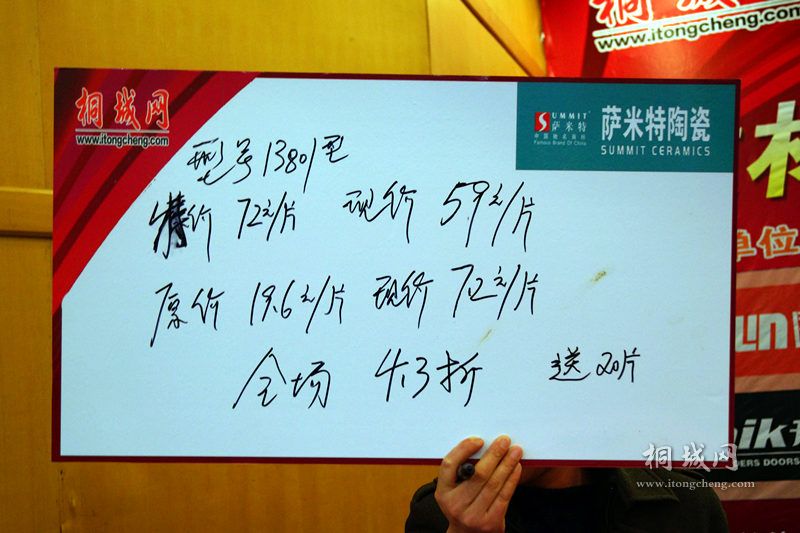 桐城网
www.itongcheng.com
桐城网
www.itongcheng.com
SUMMIT
萨米特
中国驰名商标
Famous Brand Of China
萨米特陶瓷
SUMMIT CERAMICS
型号1380/型
特价 72元/片 现价 5.9元/片
原价 19.6元/片 现价 7.2元/片
全场 4.3折 送20片
材
单位
UN
nik
DERS DOORS
桐城网
www.itongcheng.com